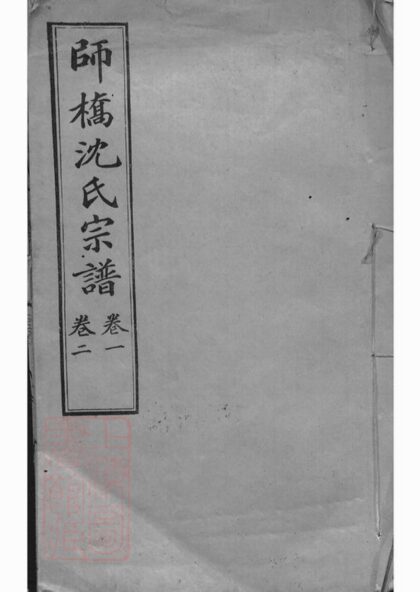 師橋沈氏宗譜
卷一
卷二